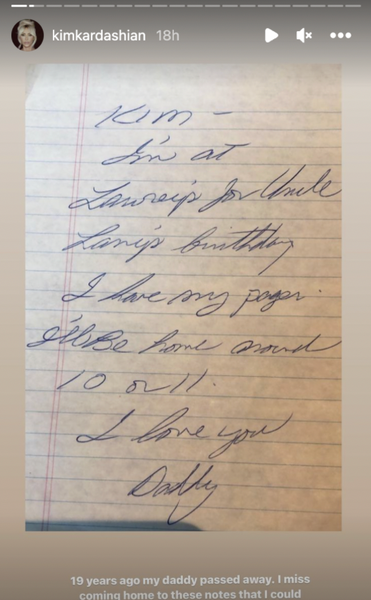 kimkardashian 18h
Kim -
I'm at
Lawry's for Uncle
Larry's birthday
I have my pager.
I'll Be home around
10 or 11.
I love you
Daddy
19 years ago my daddy passed away. I miss
coming home to these notes that I could